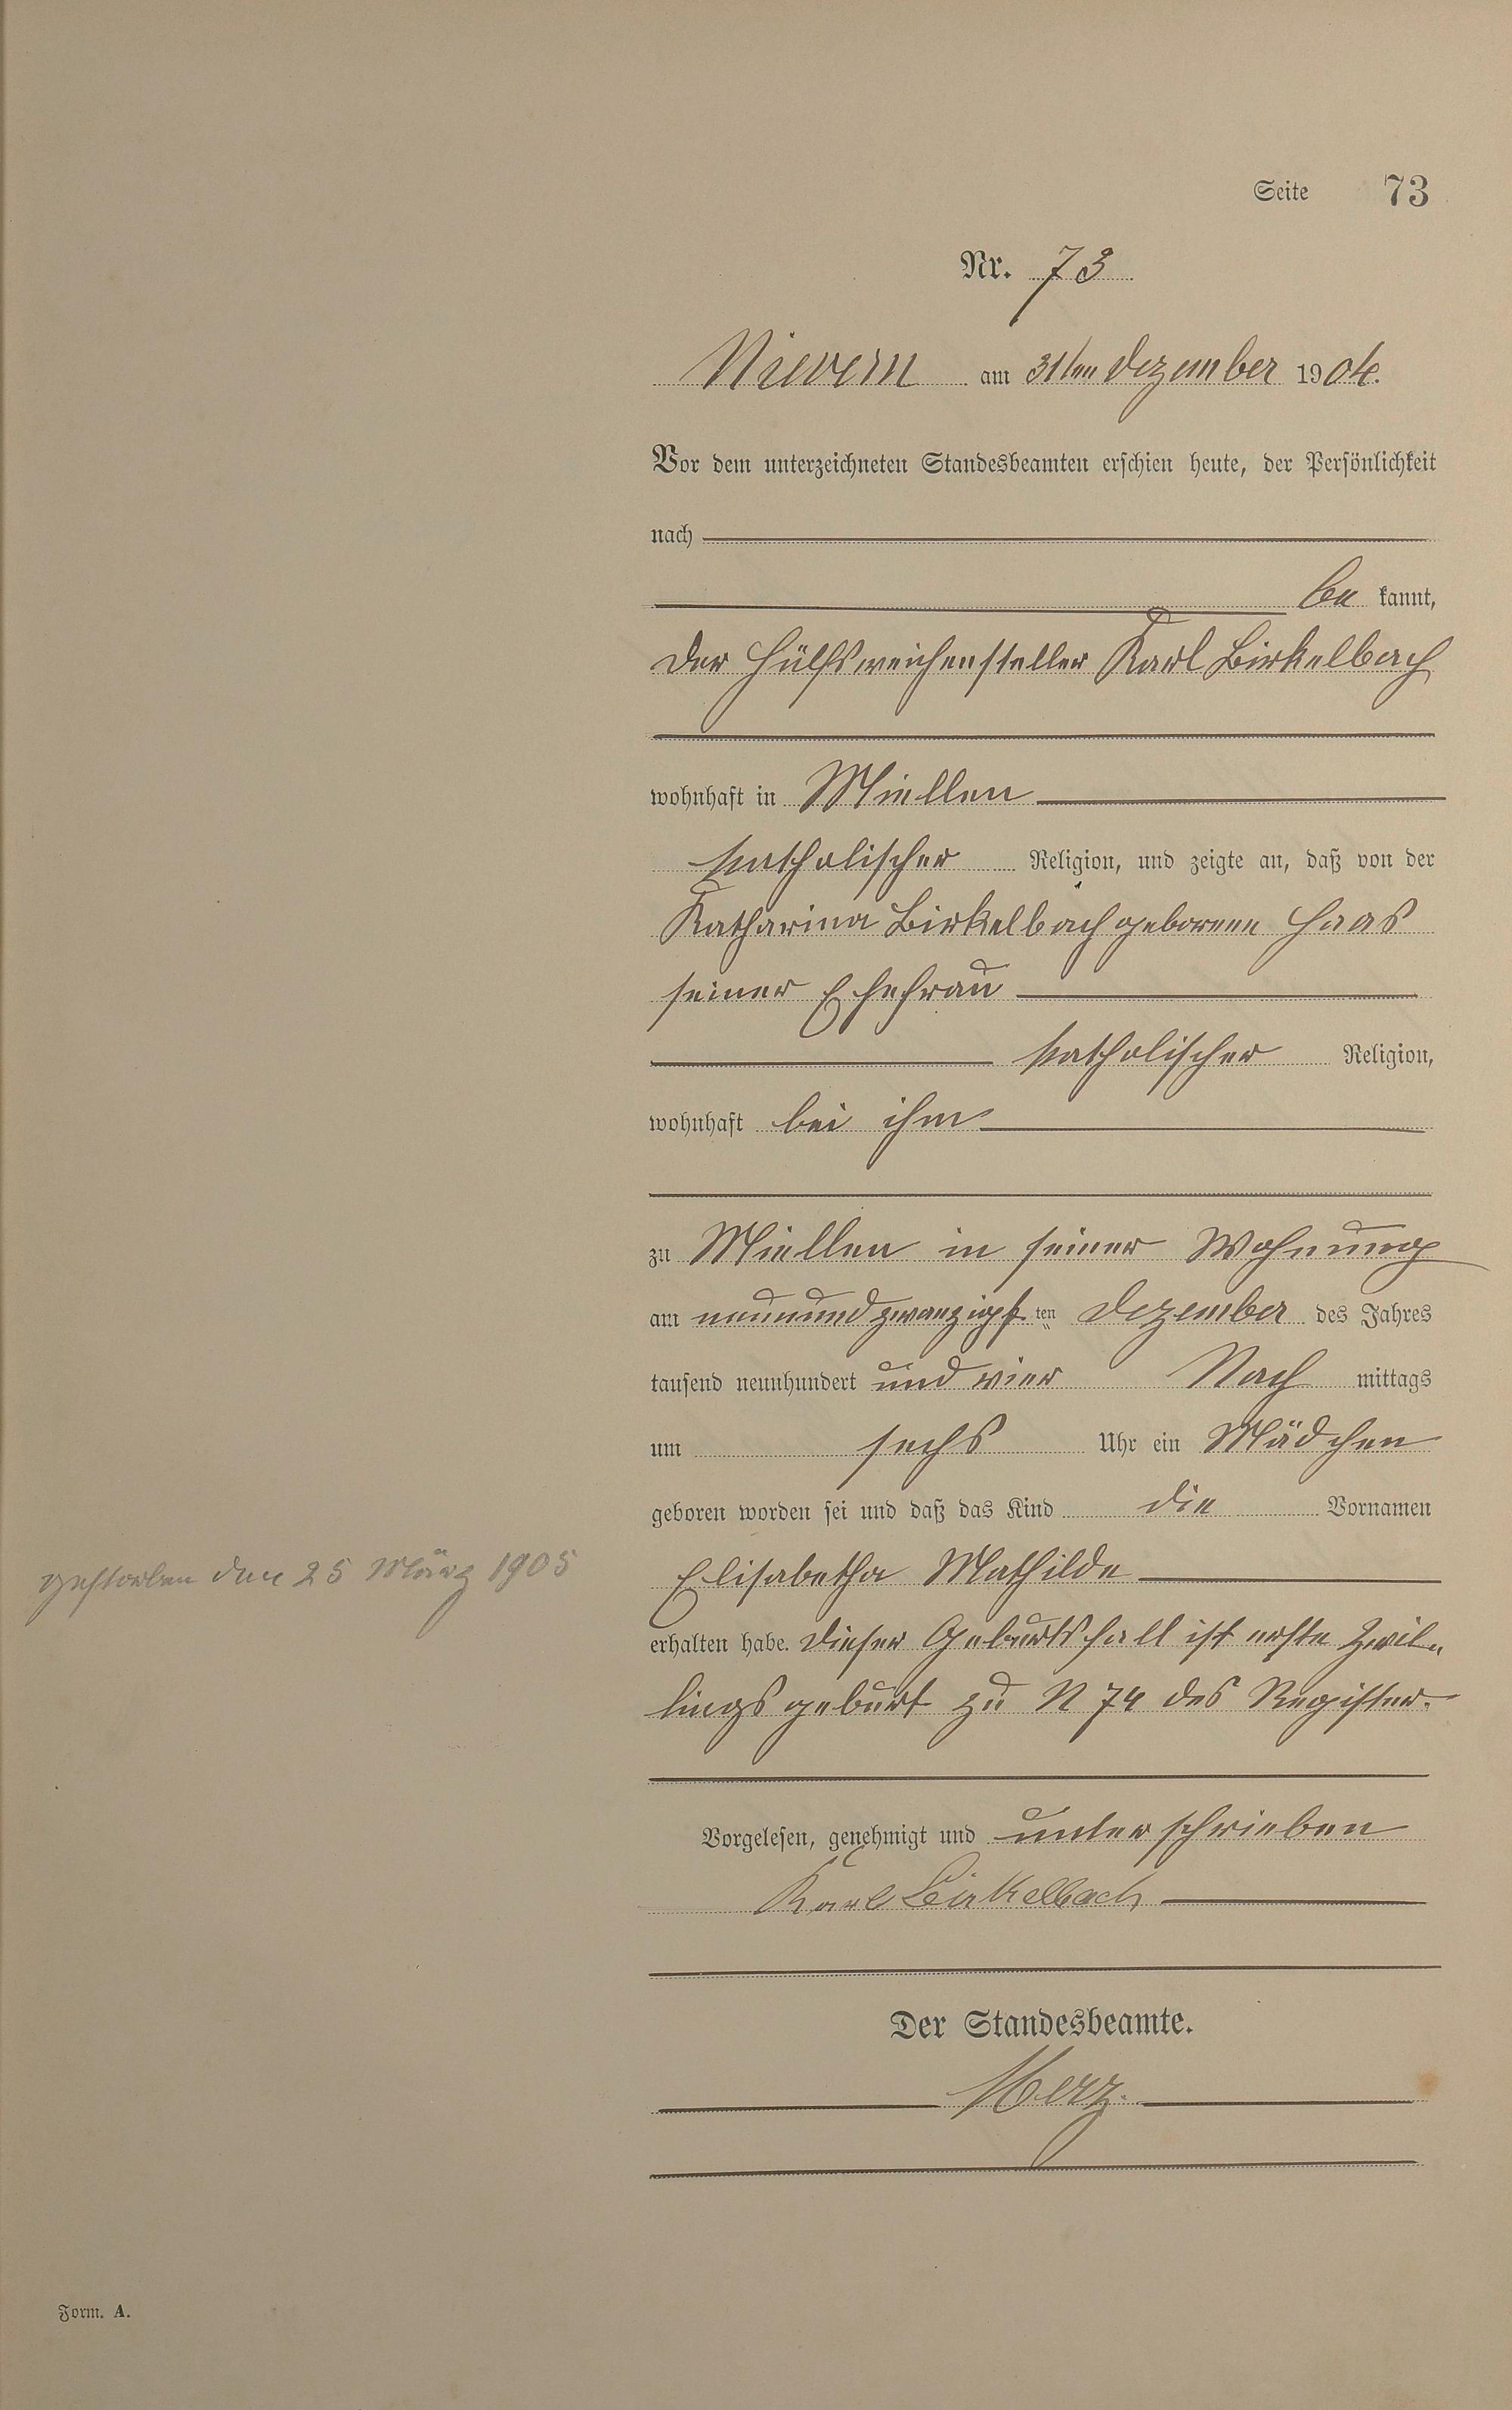 Seite 73
Nr. 73
Nievern am 31ten Dezember 1904.
Vor dem unterzeichneten Standesbeamten erschien heute, der Persönlichkeit
nach
be kannt,
der Hülfsweichensteller Karl Birkelbach
wohnhaft in Miellen
katholischer Religion, und zeigte an, daß von der
Katharina Birkelbach geborene Haas
seiner Ehefrau
katholischer Religion,
wohnhaft bei ihm
zu Miellen in seiner Wohnung
am neunundzwanzigsten Dezember des Jahres
tausend neunhundert und vier Nach mittags
um sechs Uhr ein Mädchen
geboren worden sei und daß das Kind die Vornamen
gestorben den 25 März 1905
Elisabetha Mathilde
erhalten habe. Dieser Geburtsfall ist erste Zwil-
lingsgeburt zu N 74 des Register.
Vorgelesen, genehmigt und unterschrieben
Karl Birkelbach
Der Standesbeamte.
Merz.
Form. A.